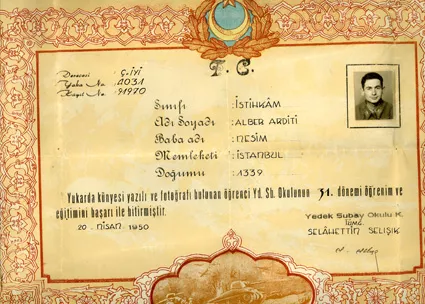 T. C.
Derecesi : Ç.İYİ
Yaka No : 1031
Kayıt No : 91970
Sınıfı : İSTİHKÂM
Adı Soyadı : ALBER ARDİTİ
Baba adı : NESİM
Memleketi : İSTANBUL
Doğumu : 1339
Yukarda künyesi yazılı ve fotoğrafı bulunan öğrenci Yd. Sb. Okulunun 31. dönemi öğrenim ve
eğitimini başarı ile bitirmiştir.
20 NİSAN 1950
Yedek Subay Okulu K.
SELÂHETTİN SELIŞIK